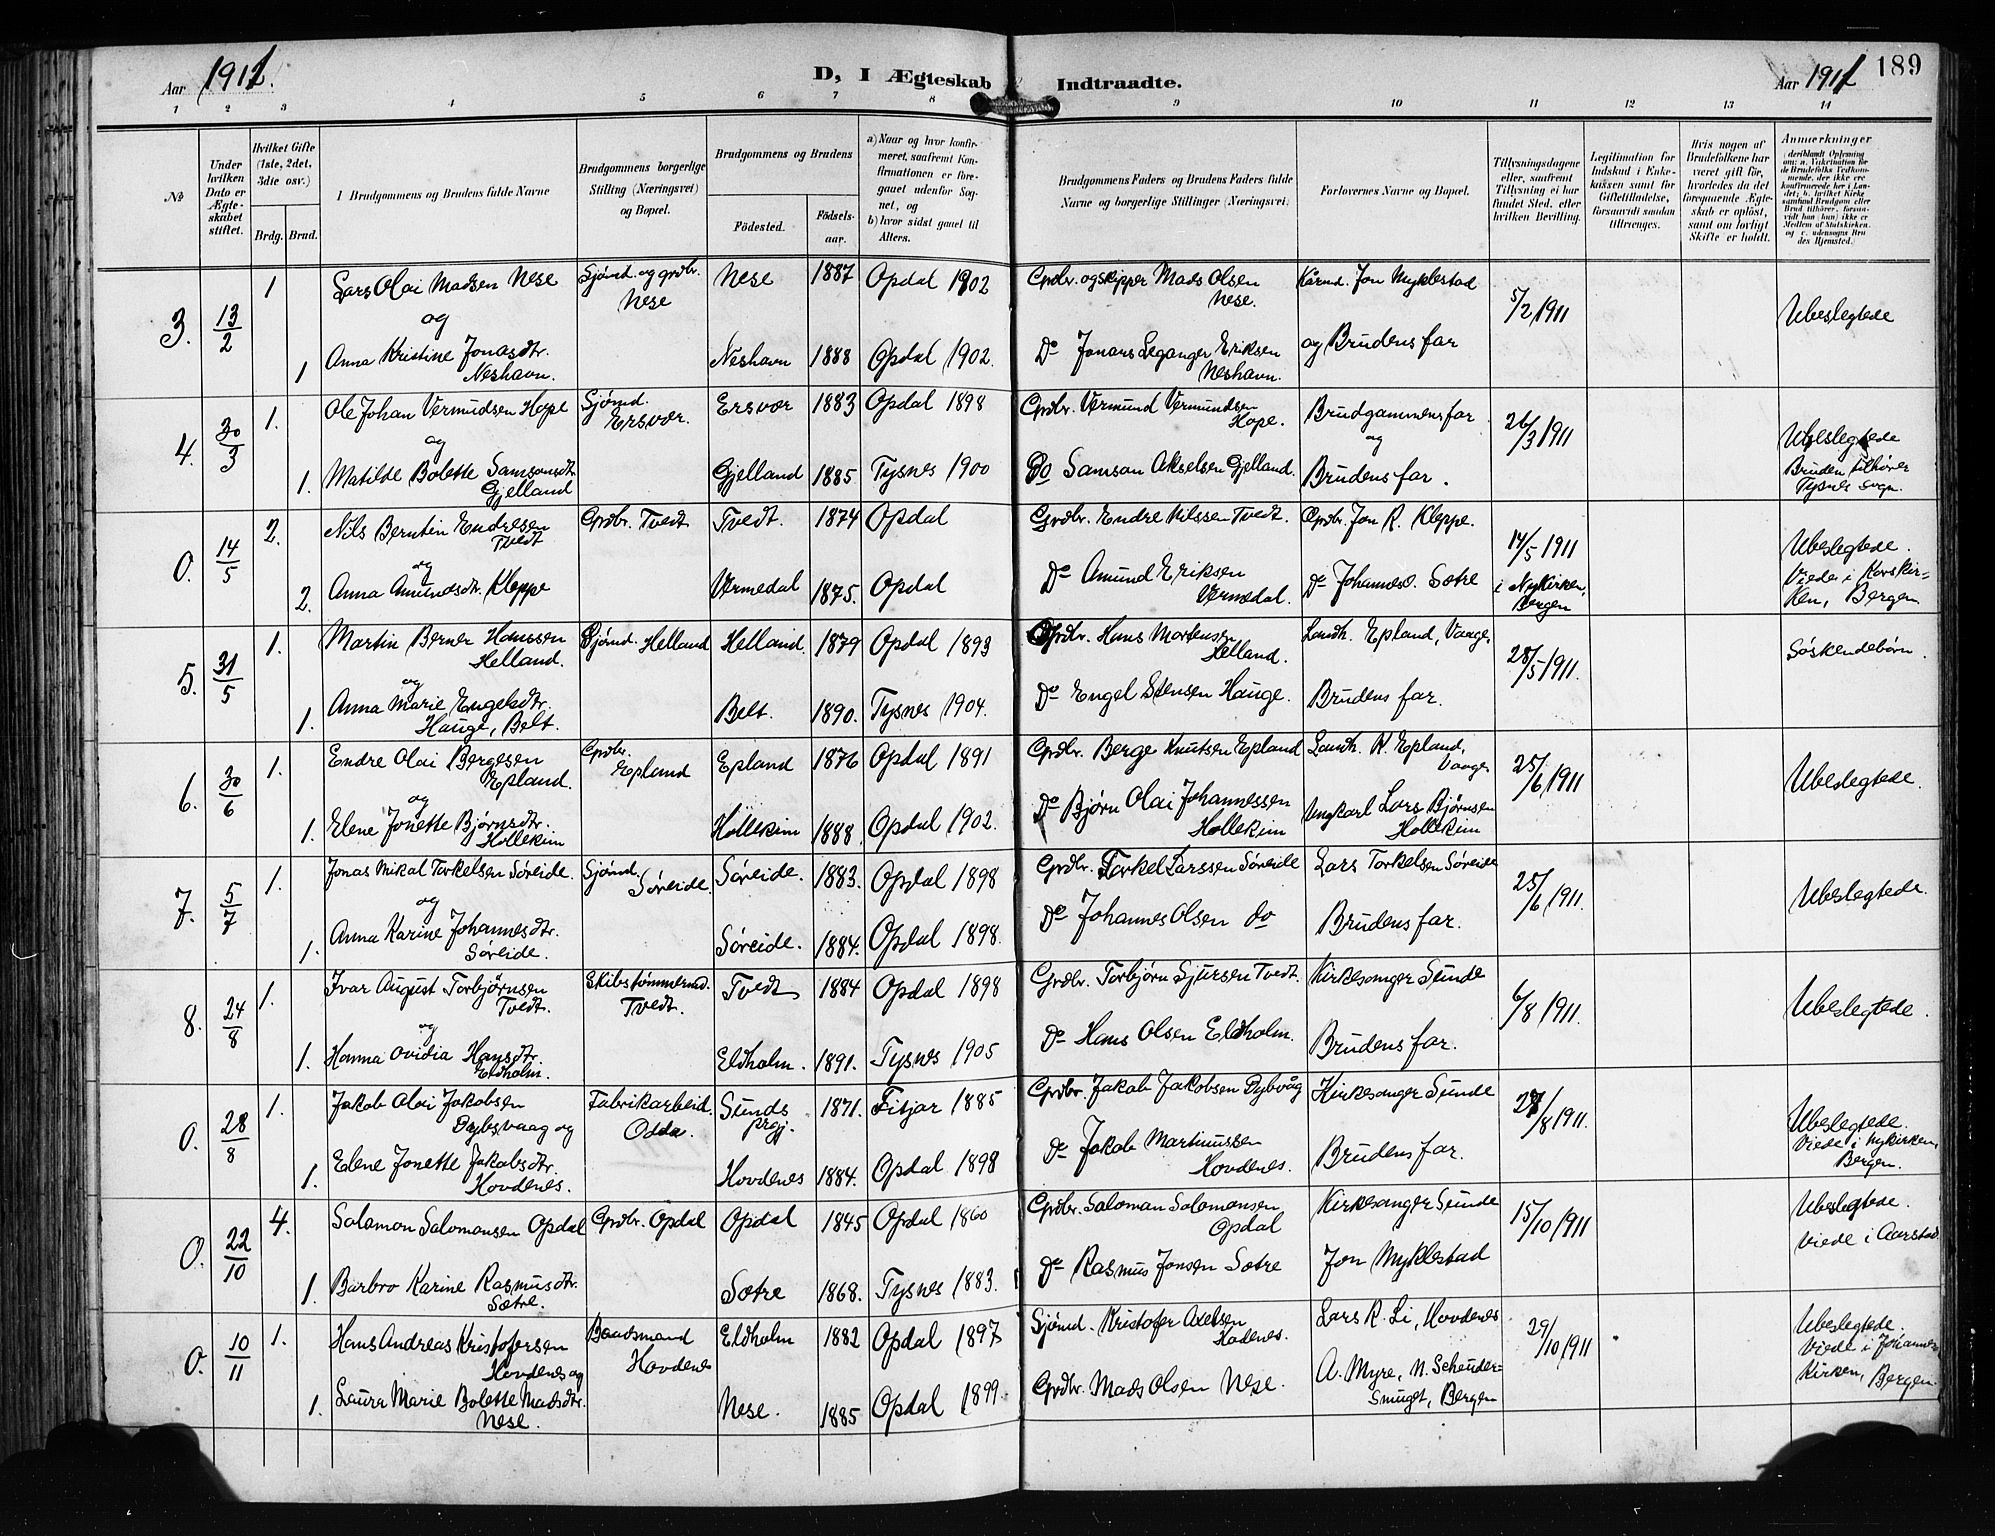 Aar 1911.
D, I Ægteskab Indtraadte.
Aar 1911
189
1 2 3 4 5 6 7 8 9 10 11 12 13 14
№
Under hvilken Dato er Ægteskabet stiftet.
Hvilket Gifte (1ste, 2det, 3die osv.)
Brdg. Brud.
I Brudgommens og Brudens fulde Navne
Brudgommens borgerlige Stilling (Næringsvei) og Bopæl.
Brudgommens og Brudens
Fødested.
Fødselsaar.
a) Naar og hvor konfirmeret, saafremt Konfirmationen er foregaaet udenfor Sognet, og
b) hvor sidst gaaet til Alters.
Brudgommens Faders og Brudens Faders fulde Navne og borgerlige Stillinger (Næringsvei)
Forlovernes Navne og Bopæl.
Tillysningsdagene eller, saafremt Tillysning ei har fundet Sted, efter hvilken Bevilling.
Legitimation for Indskud i Enkekassen samt for Giftetilladelse, forsaavidt saadan tiltrænges.
Hvis nogen af Brudefolkene har været gift før, hvorledes da det foregaaende Ægteskab er opløst, samt om lovligt Skifte er holdt.
Anmærkninger
(deriblandt Oplysning om: a. Vakcination for de Brudefolkes Vedkommende, der ikke ere konfirmerede her i Landet; b. hvilket Kirkesamfund Brudgom eller Brud tilhører, forsaavidt han (hun) ikke er Medlem af Statskirken, og c. udensogns Brudes Hjemsted.
3. 13/2 1 Lars Olai Madsen Nese Sjømd. og grdbr. Nese Nese 1887 Opdal 1902 Grdbr. og skipper Mads Olsen Nese. Kårmd. Jon Myklestad 5/2 1911 Ubeslegtede
og
1 Anna Kristine Jonasdtr. Neshavn. Neshavn 1888 Opdal 1902. Do Jonars Leganger Eriksen Neshavn. og Brudens far
4. 30/3 1. Ole Johan Vermudsen Hope Sjømd. Ersvær. Ersvær 1883 Opdal 1898 Grdbr. Vermund Vermundsen Hope. Brudgammens far 26/3 1911 Ubeslegtede
og og
1. Matilde Bolette Samsonsdtr Gjelland Gjelland 1885. Tysnes 1900 Do Samson Akselsen Gjelland. Brudens far. Bruden tilhører Tysnes sogn.
0. 14/5 2. Nils Berntin Endresen Tvedt Grdbr. Tvedt Tvedt. 1874 Opdal Grdbr. Endre Nilssen Tvedt. Grdbr. Jon R. Kleppe. 14/5 1911 Ubeslegtede.
og
2. Anna Amundsdtr. Kleppe Vermedal 1875. Opdal Do Amund Eriksen Vermedal. Do Johannes O. Sætre i Nykirken, Bergen Viede i Korskirken, Bergen
5. 31/5 1. Martin Berner Hanssen Helland. Sjømd. Helland Helland. 1879 Opdal 1893 Grdbr. Hans Mortensen Helland. Landh. Epland, Vaage. 28/5 1911. Søskendebørn.
og
1. Anna Marie Engelsdtr. Hauge, Belt. Belt. 1890. Tysnes 1904. Do Engel Stensen Hauge. Brudens far.
6. 30/6 1. Endre Olai Bergesen Epland. Grdbr. Epland Epland 1876 Opdal 1891 Grdbr. Berge Knutsen Epland Landh. K. Epland, Vaage 25/6 1911 Ubeslegtede.
og
1. Elene Jonette Bjørnsdtr. Hollekim Hollekim 1888. Opdal 1902. Do Bjørn Olai Johannessen Hollekim Ungkarl Lars Bjørnsen Hollekim
7. 5/7 1. Jonas Mikal Torkelsen Søreide. Sjømd. Søreide. Søreide. 1883. Opdal 1898 Grdbr. Torkel Larssen Søreide Lars Torkelsen Søreide 25/6 1911. Ubeslegtede.
og
1. Anna Karine Johannesdtr. Søreide. Søreide. 1884. Opdal 1898. Do Johannes Olsen do Brudens far.
8. 24/8 1. Ivar August Torbjørnsen Tvedt. Skibstømmermd. Tvedt. Tvedt 1884 Opdal 1898 Grdbr. Torbjørn Sjursen Tvedt. Kirkesanger Sunde 6/8 1911. Ubeslegtede.
og
1. Hanna Ovidia Hansdtr. Eldholm. Eldholm. 1891. Tysnes 1905 Do Hans Olsen Eldholm. Brudens far.
0. 28/8 1. Jakob Olai Jakobsen Dybvaag og Fabrikarbeid. Odda. Sunds prgj. 1871. Fitjar 1885 Grdbr Jakob Jakobsen Dybvåg Kirkesanger Sunde 27/8 1911. Ubeslegtede.
1. Elene Jonette Jakobsdtr. Hovdenes. Hovdenes 1884. Opdal 1898 Do Jakob Martinussen Hovdenes. Brudens far. Viede i Nykirken, Bergen.
0. 22/10 4. Salomon Salomonsen Opdal Grdbr. Opdal Opdal 1845 Opdal 1860 Grdbr. Saloman Salomonsen Opdal Kirkesanger Sunde 15/10 1911 Ubeslegtede.
1. Barbro Karine Rasmusdtr. Sætre. Sætre 1868. Tysnes 1883. Do Rasmus Jonsen Sætre Jon Myklestad Viede i Aarstad.
0. 10/11 1. Hans Andreas Kristofersen Hovdenes og Baadsmand Hovdenes Eldholm 1882 Opdal 1897 Sjømd. Kristofer Axelsen Hodenes. Lars R. Li, Hovdenes 29/10 1911 Ubeslegtede.
1. Laura Marie Bolette Madsdtr. Nese. Nese. 1885 Opdal 1899. Grdbr. Mads Olsen Nese. A. Myre, N. Scheuder= smuget, Bergen Viede i Johanneskirken, Bergen.